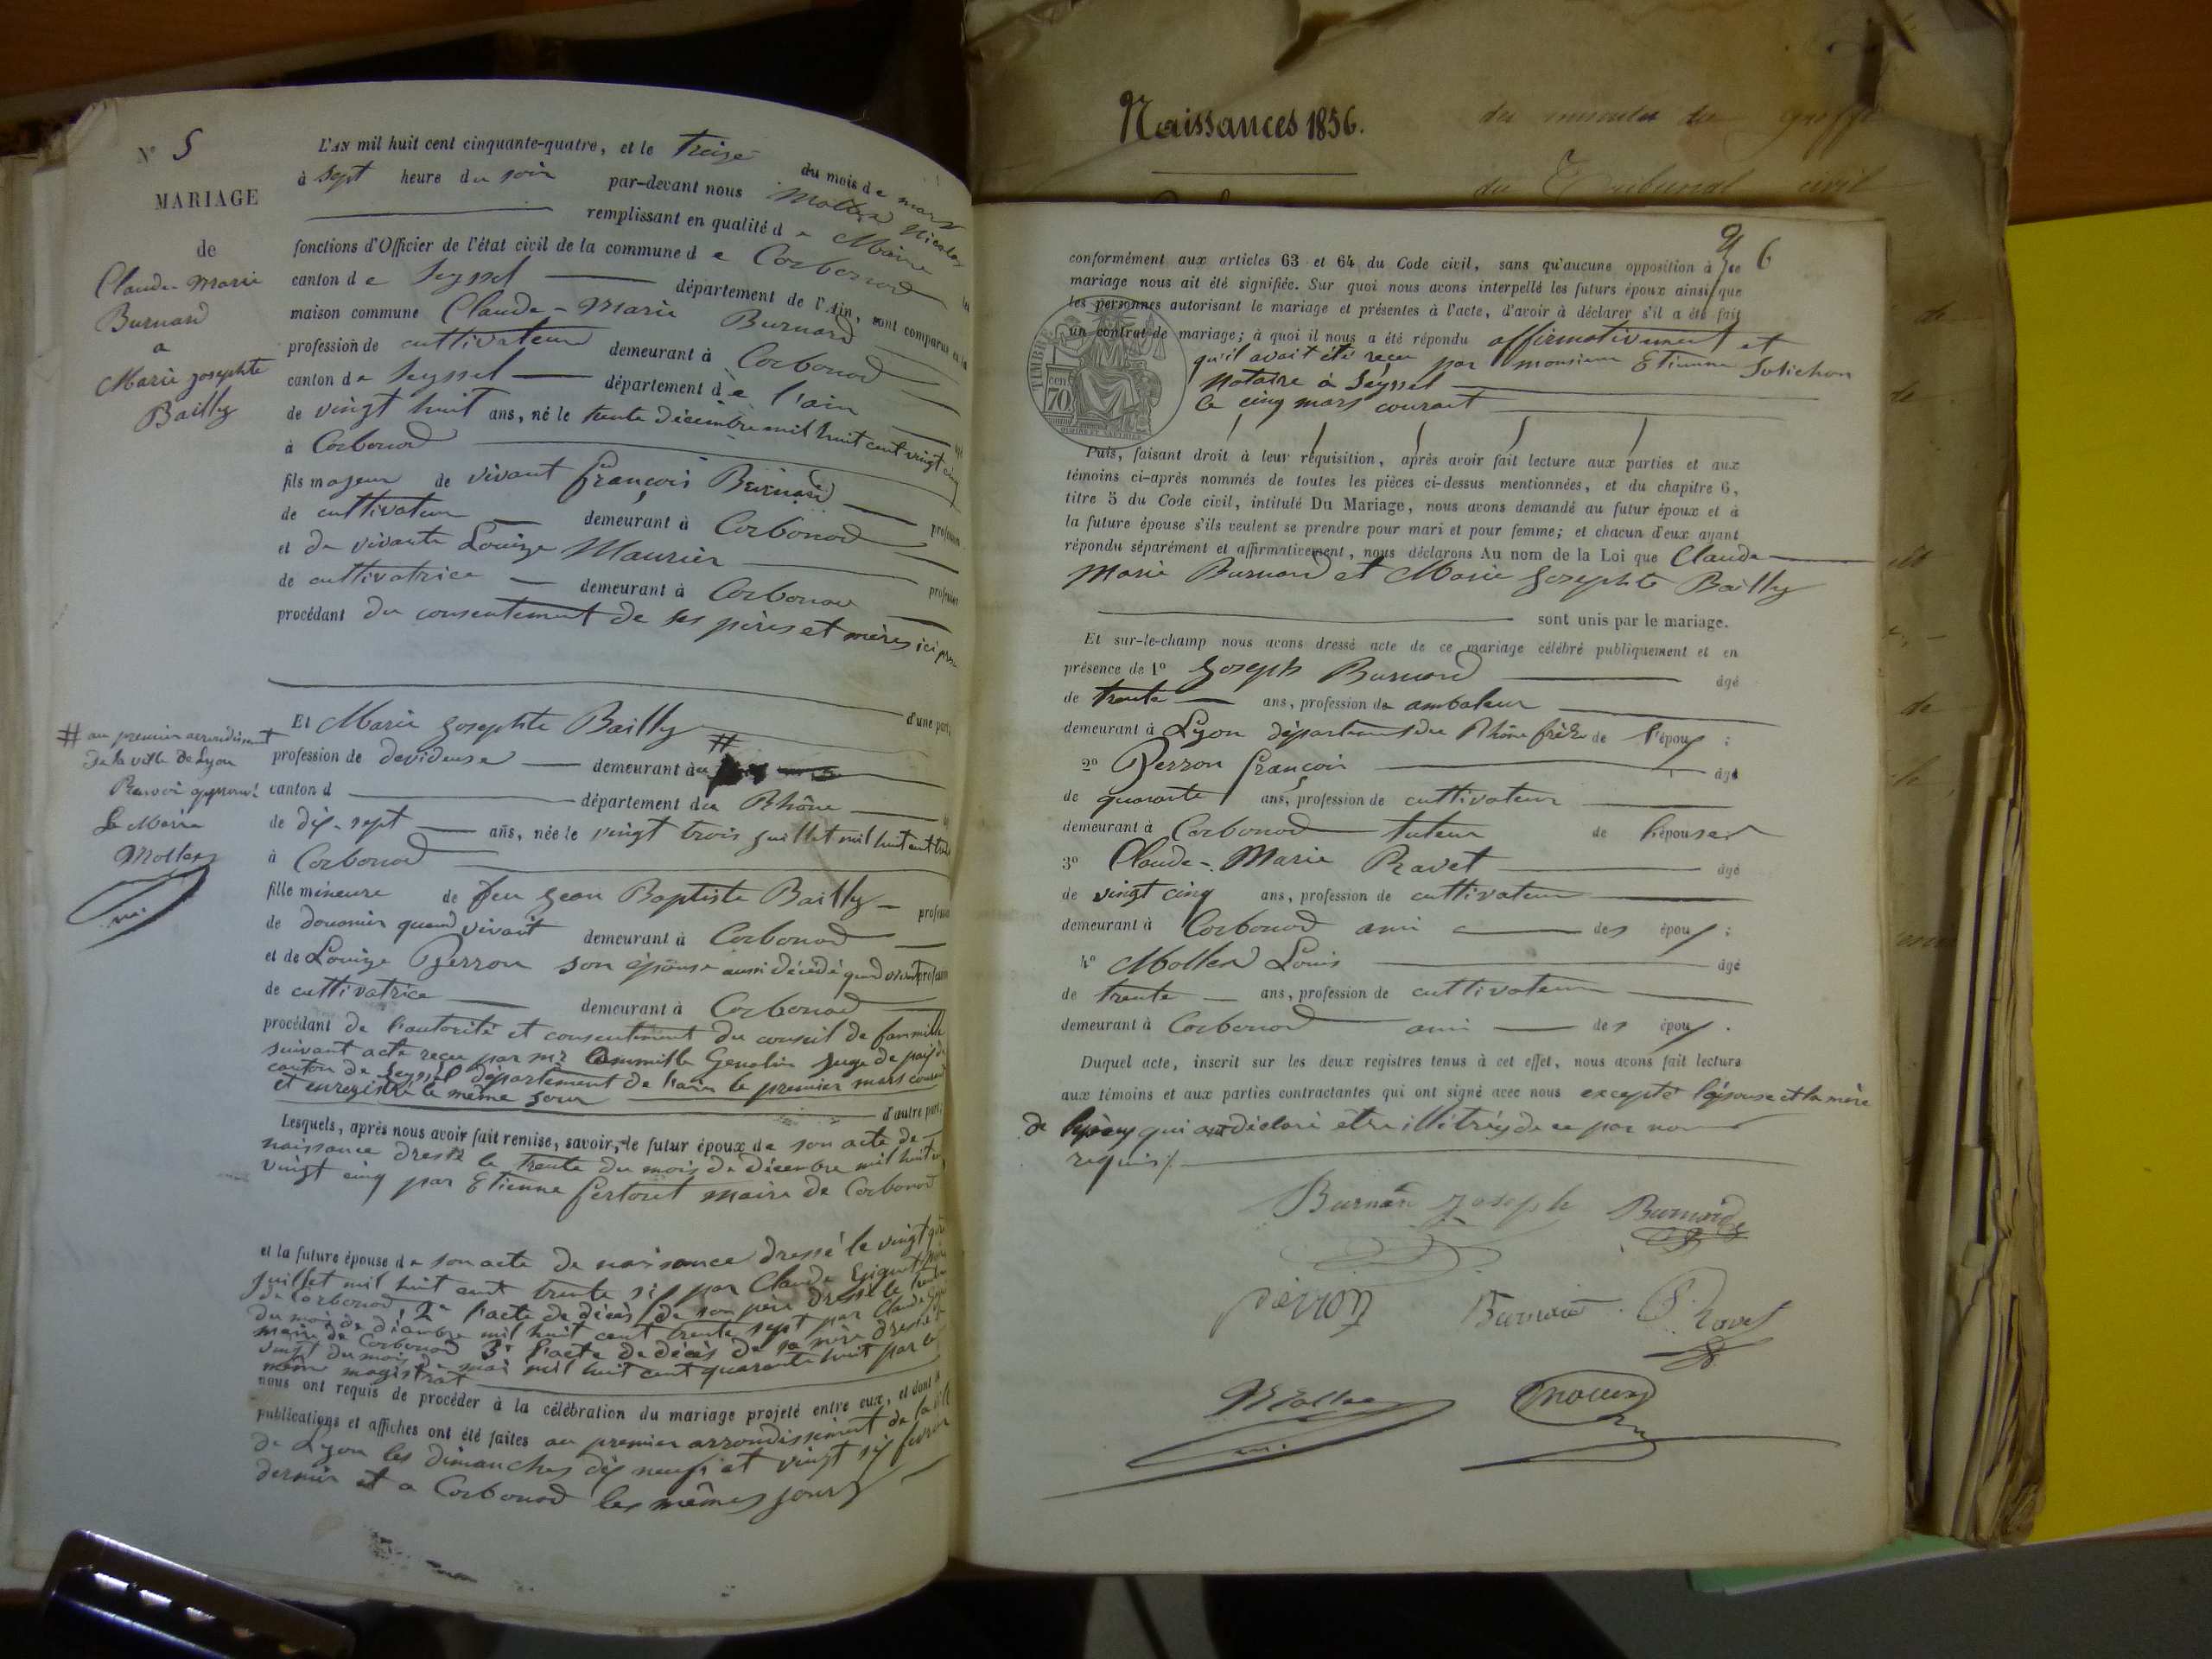 N° 5
MARIAGE
de
Claude Marie
Burnard
a
Marie Josephte
Bailly
L'AN mil huit cent cinquante-quatre, et le treize du mois de mars
à sept heure du soir par-devant nous Mollex Nicolas
remplissant en qualité de Maire
fonctions d'Officier de l'état civil de la commune de Corbonod
canton de Seyssel département de l'Ain, sont comparus
maison commune Claude-Marie Burnard
profession de cultivateur demeurant à Corbonod
canton de Seyssel département de l'ain
de vingt huit ans, né le trente décembre mil huit cent vingt cinq
à Corbonod
fils majeur de vivant françois Burnard
de cultivateur demeurant à Corbonod profession
et de vivante Louise Maurier
de cultivatrice demeurant à Corbonod profession
procédant du consentement de ses pères et mères ici
d'une part;
Et Marie Josephte Bailly #
# au premier arrondissement
de la ville de Lyon
Renvoi approuvé
Le Maire
Mollex
profession de devideuse demeurant
canton d département du Rhône
de dix-sept ans, née le vingt trois Juillet mil huit cent
à Corbonod
fille mineure de feu Jean Baptiste Bailly profession
de douanier quand vivait demeurant à Corbonod
et de Louize Perron son épouse aussi décédé quand vivait
de cultivatrice demeurant à Corbonod
procédant de l'autorité et consentement du conseil de famille
suivant acte reçu par Juge de paix
canton de Seyssel département de l'ain le premier mars courant
et enregistré le même jour
d'autre part;
Lesquels, après nous avoir fait remise, savoir, le futur époux de son acte de
naissance dressé le trente du mois de décembre mil huit
vingt cinq par Etienne fertoret maire de Corbonod
et la future épouse de son acte de naissance dressé le vingt
juillet mil huit cent trente six par Claude
de Corbonod, 2° l'acte de décès de son père dressé le
du mois de décembre mil huit cent trente sept par Claude
maire de Corbonod 3° l'acte de décès de sa mère dressé
vingt du mois de mai mil huit cent quarante huit par le
même magistrat
nous ont requis de procéder à la célébration du mariage projeté entre eux, et dont
publications et affiches ont été faites au premier arrondissement de la
de Lyon les dimanches dix neuf et vingt six
dernier et a Corbonod les mêmes jours
Naissances 1856.
des minutes du greffe
du Tribunal civil
6
conformément aux articles 63 et 64 du Code civil, sans qu'aucune opposition à ce
mariage nous ait été signifiée. Sur quoi nous avons interpellé les futurs époux ainsi que
les personnes autorisant le mariage et présentes à l'acte, d'avoir à déclarer s'il a été fait
un contrat de mariage; à quoi il nous a été répondu affirmativement et
qu'il avait été reçu par monsieur Etienne
Notaire à Seyssel
le cinq mars courant
TIMBRE
cen
70
Puis, faisant droit à leur réquisition, après avoir fait lecture aux parties et aux
témoins ci-après nommés de toutes les pièces ci-dessus mentionnées, et du chapitre 6,
titre 5 du Code civil, intitulé Du Mariage, nous avons demandé au futur époux et à
la future épouse s'ils veulent se prendre pour mari et pour femme; et chacun d'eux ayant
répondu séparément et affirmativement, nous déclarons Au nom de la Loi que Claude
Marie Burnard et Marie Josephte Bailly
sont unis par le mariage.
Et sur-le-champ nous avons dressé acte de ce mariage célébré publiquement et en
présence de 1° Joseph Burnard âgé
de trente ans, profession de
demeurant à Lyon département du Rhône frère de l'époux ;
2° Perron françois âgé
de quarante ans, profession de cultivateur
demeurant à Corbonod tuteur de l'épouse
3° Claude-Marie Ravet âgé
de vingt cinq ans, profession de cultivateur
demeurant à Corbonod ami des époux ;
4° Mollex Louis âgé
de trente ans, profession de cultivateur
demeurant à Corbonod ami des époux .
Duquel acte, inscrit sur les deux registres tenus à cet effet, nous avons fait lecture
aux témoins et aux parties contractantes qui ont signé avec nous excepté l'épouse et la mère
de l'époux qui ont déclaré être illétrés de ce par nous
requis
Burnard Joseph Burnard
perron Burnard C. Ravet
Mollex Mollex